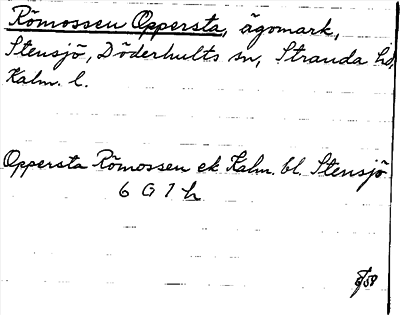 Römossen Oppersta, ägomark,
Stensjö, Döderhults sn, Stranda hd,
Kalm. l.
Oppersta Römossen ek Kalm. bl. Stensjö
6 G 1 h